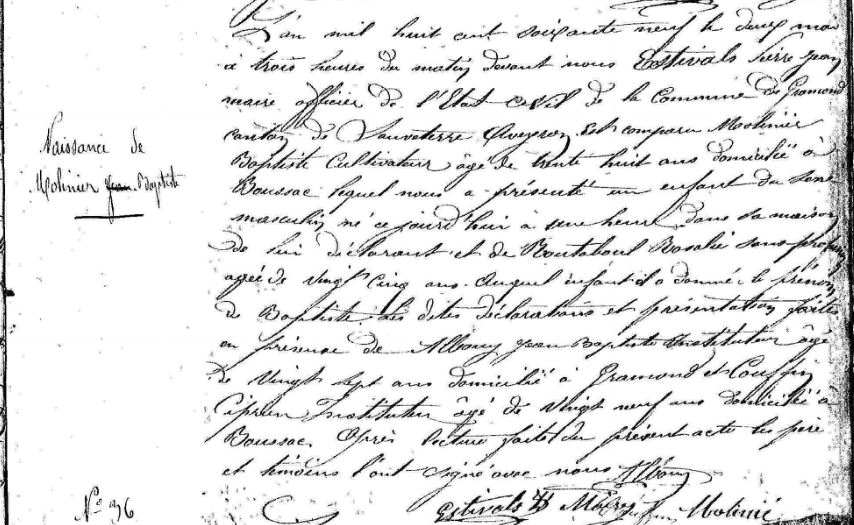 Naissance de
Molinier Jean Baptiste
N° 36
L'an mil huit cent soixante neuf le deux mai
à trois heures du matin devant nous Estivals Pierre Jean
maire officier de l'Etat Civil de la Commune de Gramond
canton de Sauveterre Aveyron. Est comparu Molinier
Baptiste Cultivateur âgé de trente huit ans domicilié à
Boussac lequel nous a présenté un enfant du sexe
masculin né ce jourd'hui à une heure dans sa maison
de lui déclarant et de Boutaboul Rosalie sans profon
agée de vingt cinq ans. Auquel enfant il a donné le prénom
de Baptiste. Les dites déclarations et présentation faites
en présence de Albouy Jean Baptiste Instituteur âgé
de vingt sept ans domicilié à Gramond et Couffin
Ciprien Instituteur âgé de vingt neuf ans domicilié à
Boussac. Après lecture faite du présent acte les père
et témoins l'ont signé avec nous Albouy
Estivals Maire Molinié